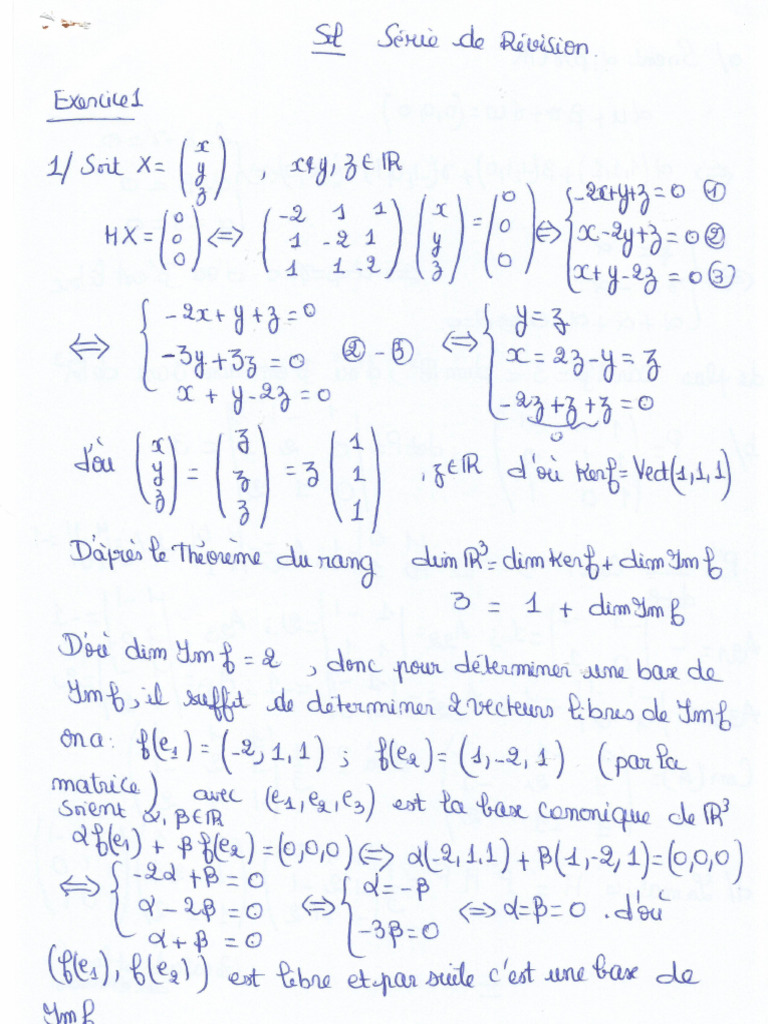 Sol Série de Révision
Exercice 1
1/ Soit X = (x y z) x, y, z ∈ ℝ
HX = (0 0 0) ⟺ (-2 1 1 / 1 -2 1 / 1 1 -2) (x y z) = (0 0 0) ⟺ { -2x+y+z = 0 ①
x-2y+z = 0 ②
x+y-2z = 0 ③
⟺ { -2x+y+z = 0
-3y+3z = 0 ②-③
x + y-2z = 0
⟺ { y = z
x = 2z-y = z
-2z+z+z = 0
0
d'où (x y z) = (z z z) = z (1 1 1) , z∈ℝ d'où Kerf = Vect(1,1,1)
D'après le Théorème du rang dim ℝ³ = dim Kerf + dim Imf
3 = 1 + dim Imf
D'où dim Im f = 2 , donc pour déterminer une base de
Imf, il suffit de déterminer 2 vecteurs libres de Imf
on a: f(e₁) = (-2,1,1) ; f(e₂) = (1,-2,1) (par la
matrice) avec (e₁,e₂,e₃) est la base canonique de ℝ³
soient α, β∈ℝ
αf(e₁) + βf(e₂) = (0,0,0) ⟺ α(-2,1,1) + β(1,-2,1) = (0,0,0)
⟺ { -2α+β = 0
α-2β = 0
α+β = 0
⟺ { α = -β
-3β = 0
⟺ α=β=0 . d'où
(f(e₁), f(e₂)) est libre et par suite c'est une base de
Imf